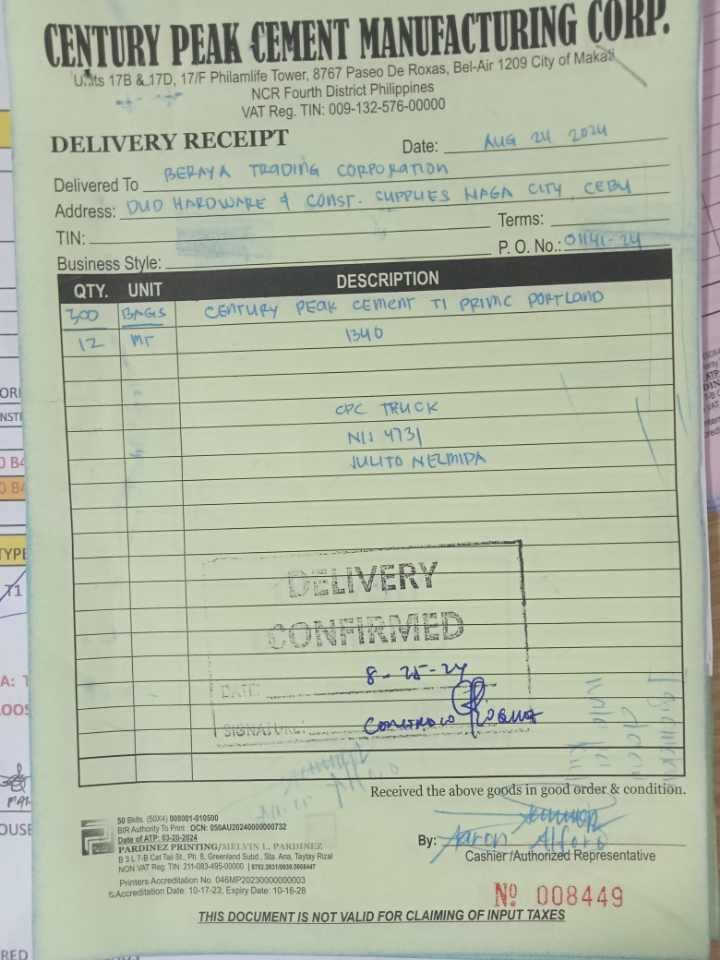 CENTURY PEAK CEMENT MANUFACTURING CORP.
Units 17B & 17D, 17/F Philamlife Tower, 8767 Paseo De Roxas, Bel-Air 1209 City of Makati
NCR Fourth District Philippines
VAT Reg. TIN: 009-132-576-00000
DELIVERY RECEIPT
Date: AUG 24 2024
Delivered To BERAYA TRADING CORPORATION
Address: DUO HARDWARE & CONST. SUPPLIES NAGA CITY CEBU
TIN:
Terms:
Business Style:
P. O. No.: 01141-24
QTY. UNIT DESCRIPTION
300 BAGS CENTURY PEAK CEMENT T1 PRIME PORTLAND
12 MT 1340
CPC TRUCK
NII 4731
JULITO NELMIDA
DELIVERY
CONFIRMED
DATE: 8-25-24
SIGNATURE:
Received the above goods in good order & condition.
By: Aaron Alforo
Cashier/Authorized Representative
50 Bklts. (50X4) 008001-010500
BIR Authority To Print : OCN: 050AU20240000000732
Date of ATP: 03-20-2024
PARDINEZ PRINTING/MELVYN L. PARDINEZ
B 3 L 7-B Cat Tail St., Ph. 8, Greenland Subd., Sta. Ana, Taytay Rizal
NON VAT Reg. TIN: 211-083-495-00000
Printers Accreditation No. 046MP20230000000003
Accreditation Date: 10-17-23, Expiry Date: 10-16-28
Nº 008449
THIS DOCUMENT IS NOT VALID FOR CLAIMING OF INPUT TAXES